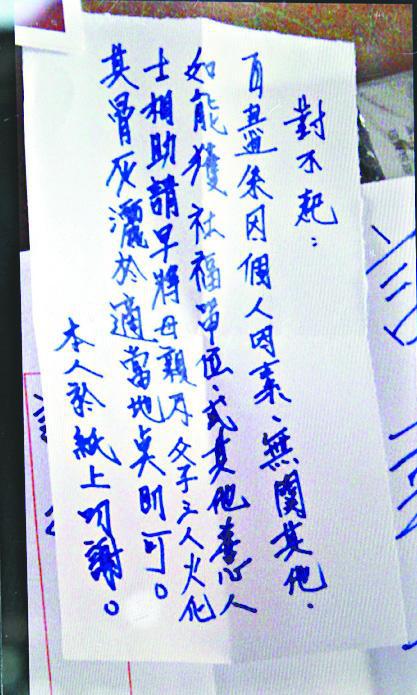 對不起：
自盡系因個人因素、無關其他.
如能獲社福單位、或其他善心人
士相助請早將母親及父子三人火化
其骨灰灑於適當地點即可。
本人於紙上叩謝。